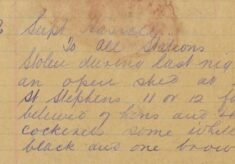 Supt
To All Stations
Stolen during last nig
an open shed at
St Stephens 11 or 12 fo
believed of hens and
cockerels some white
black and one brow